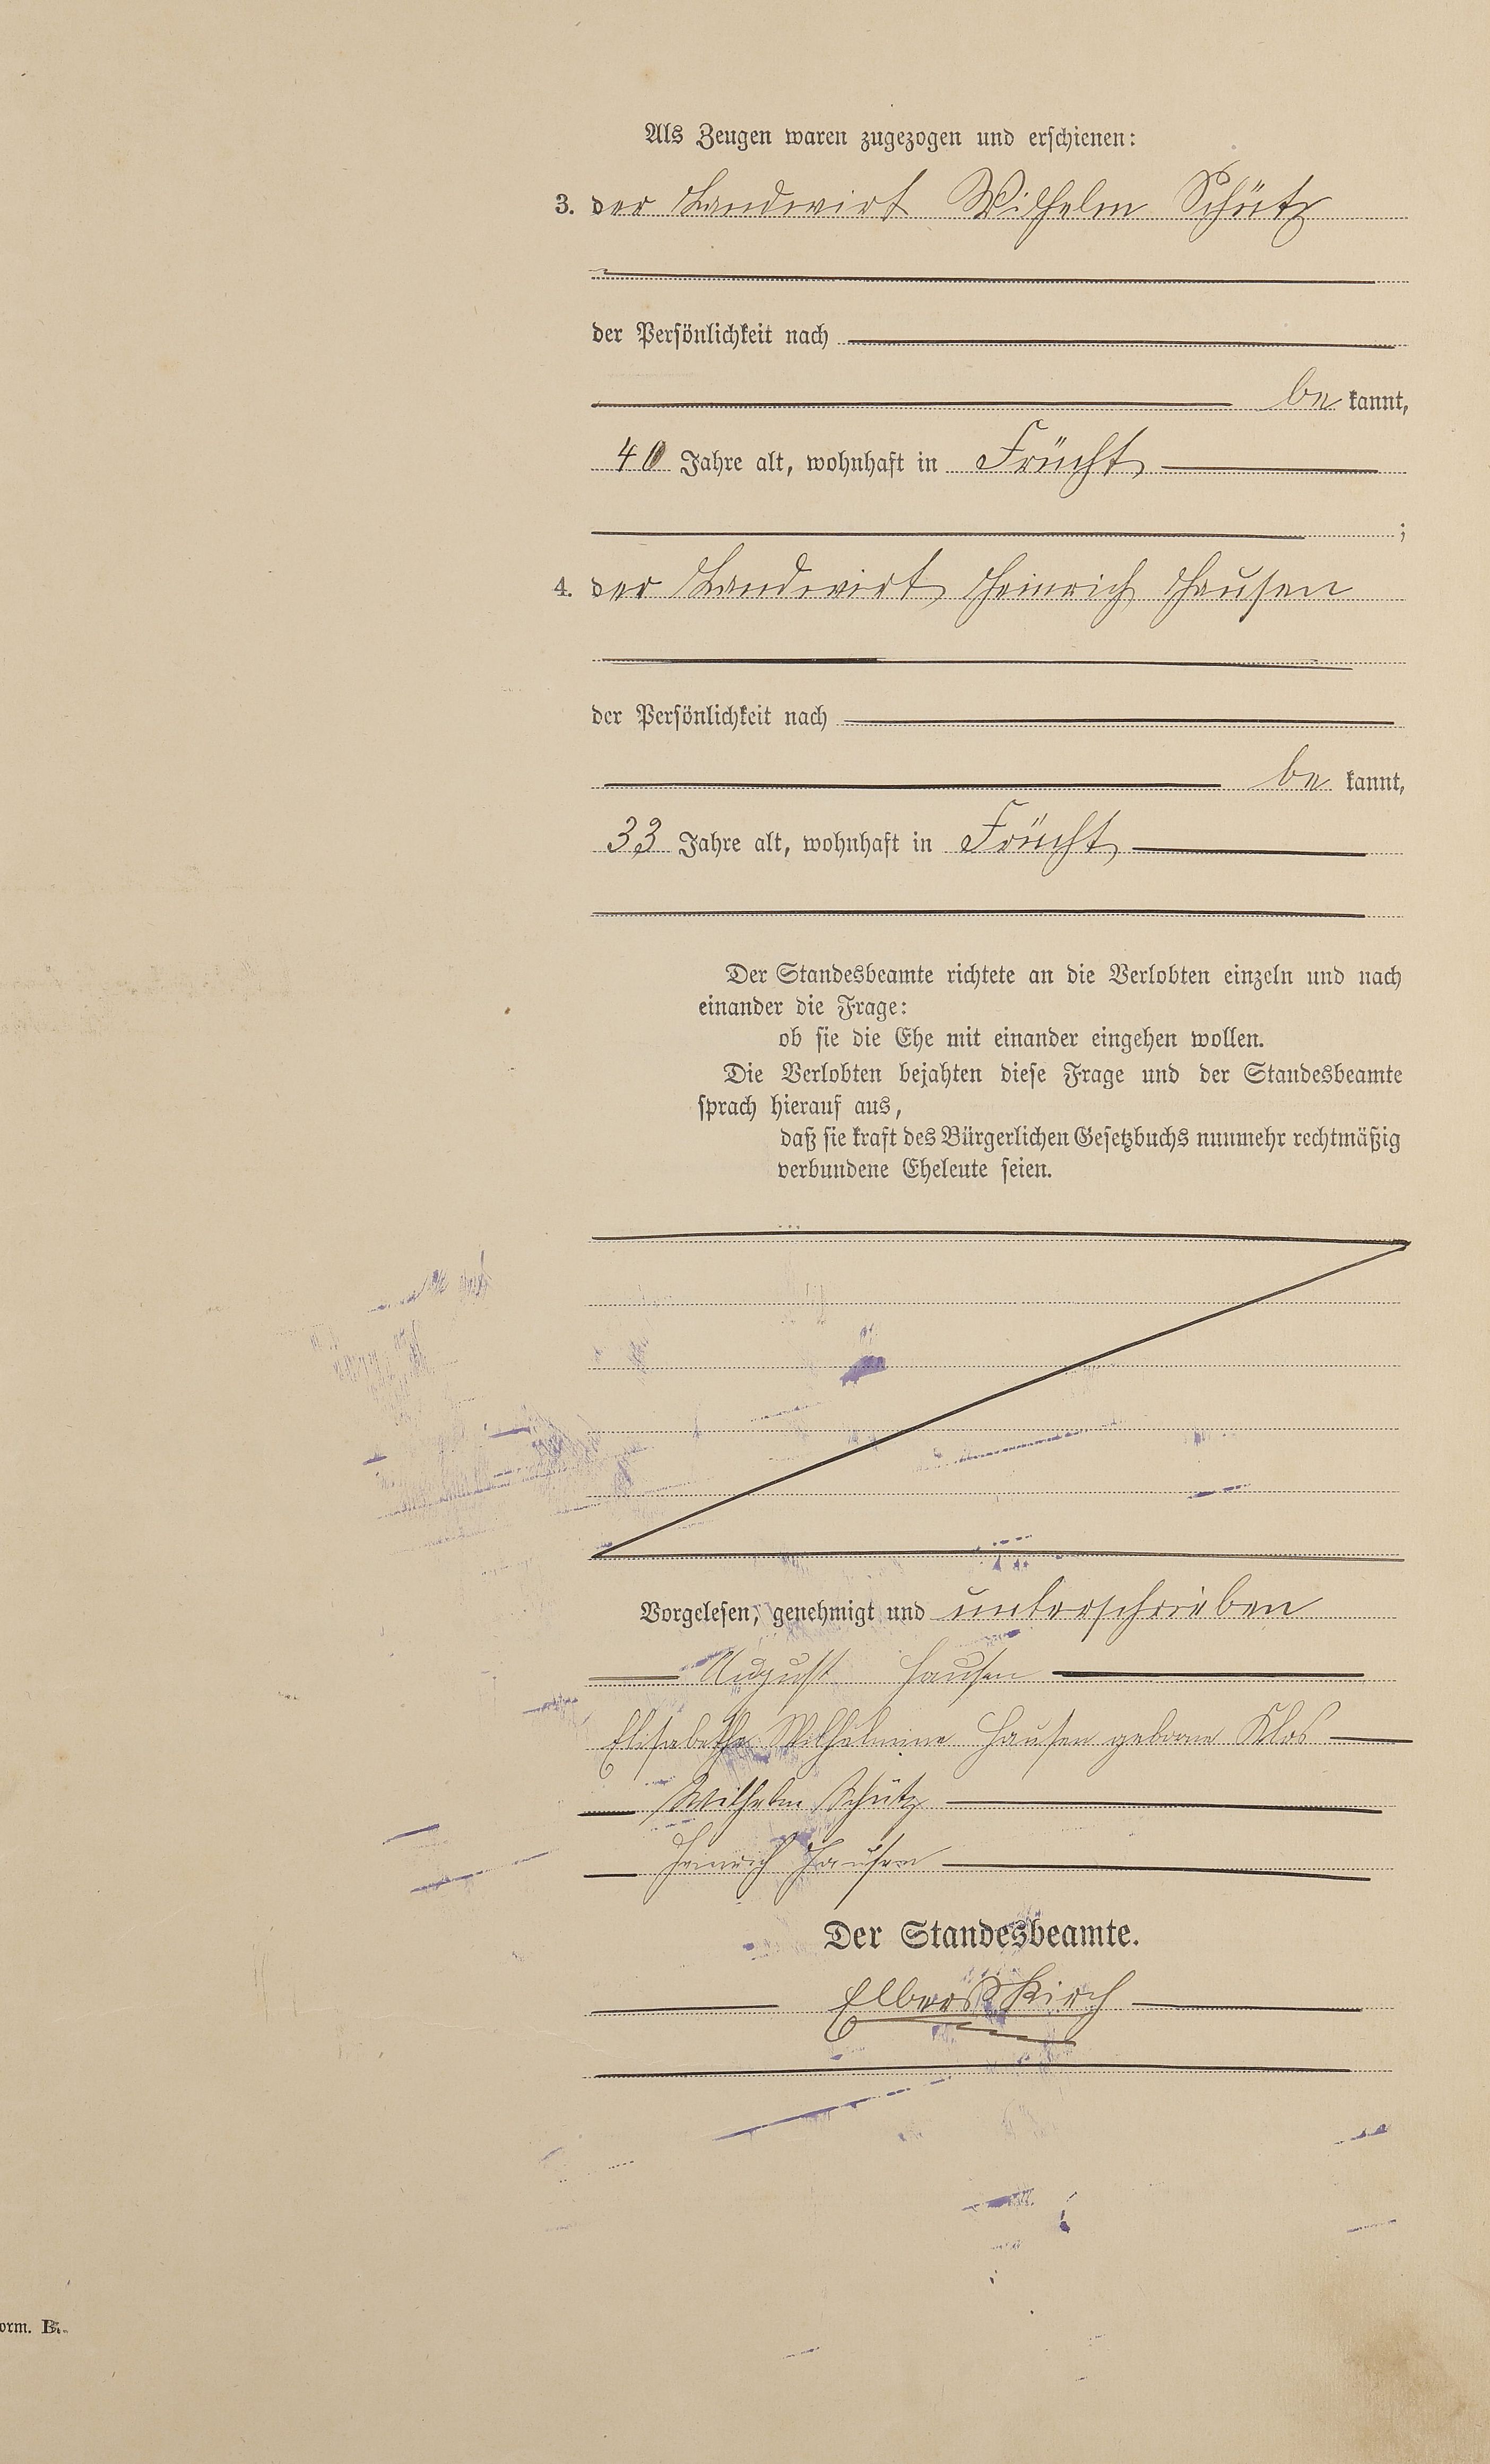 Als Zeugen waren zugezogen und erschienen:
3. der Landwirt Wilhelm Schütz
der Persönlichkeit nach
be kannt,
40 Jahre alt, wohnhaft in Frücht
;
4. der Landwirt Heinrich Hausen
der Persönlichkeit nach
be kannt,
33 Jahre alt, wohnhaft in Frücht
Der Standesbeamte richtete an die Verlobten einzeln und nach
einander die Frage:
ob sie die Ehe mit einander eingehen wollen.
Die Verlobten bejahten diese Frage und der Standesbeamte
sprach hierauf aus,
daß sie kraft des Bürgerlichen Gesetzbuchs nunmehr rechtmäßig
verbundene Eheleute seien.
Vorgelesen, genehmigt und unterschrieben
August Hausen
Elisabethe Wilhelmine Hausen geborne Klos
Wilhelm Schütz
Heinrich Hausen
Der Standesbeamte.
Elberskirch
orm. B.